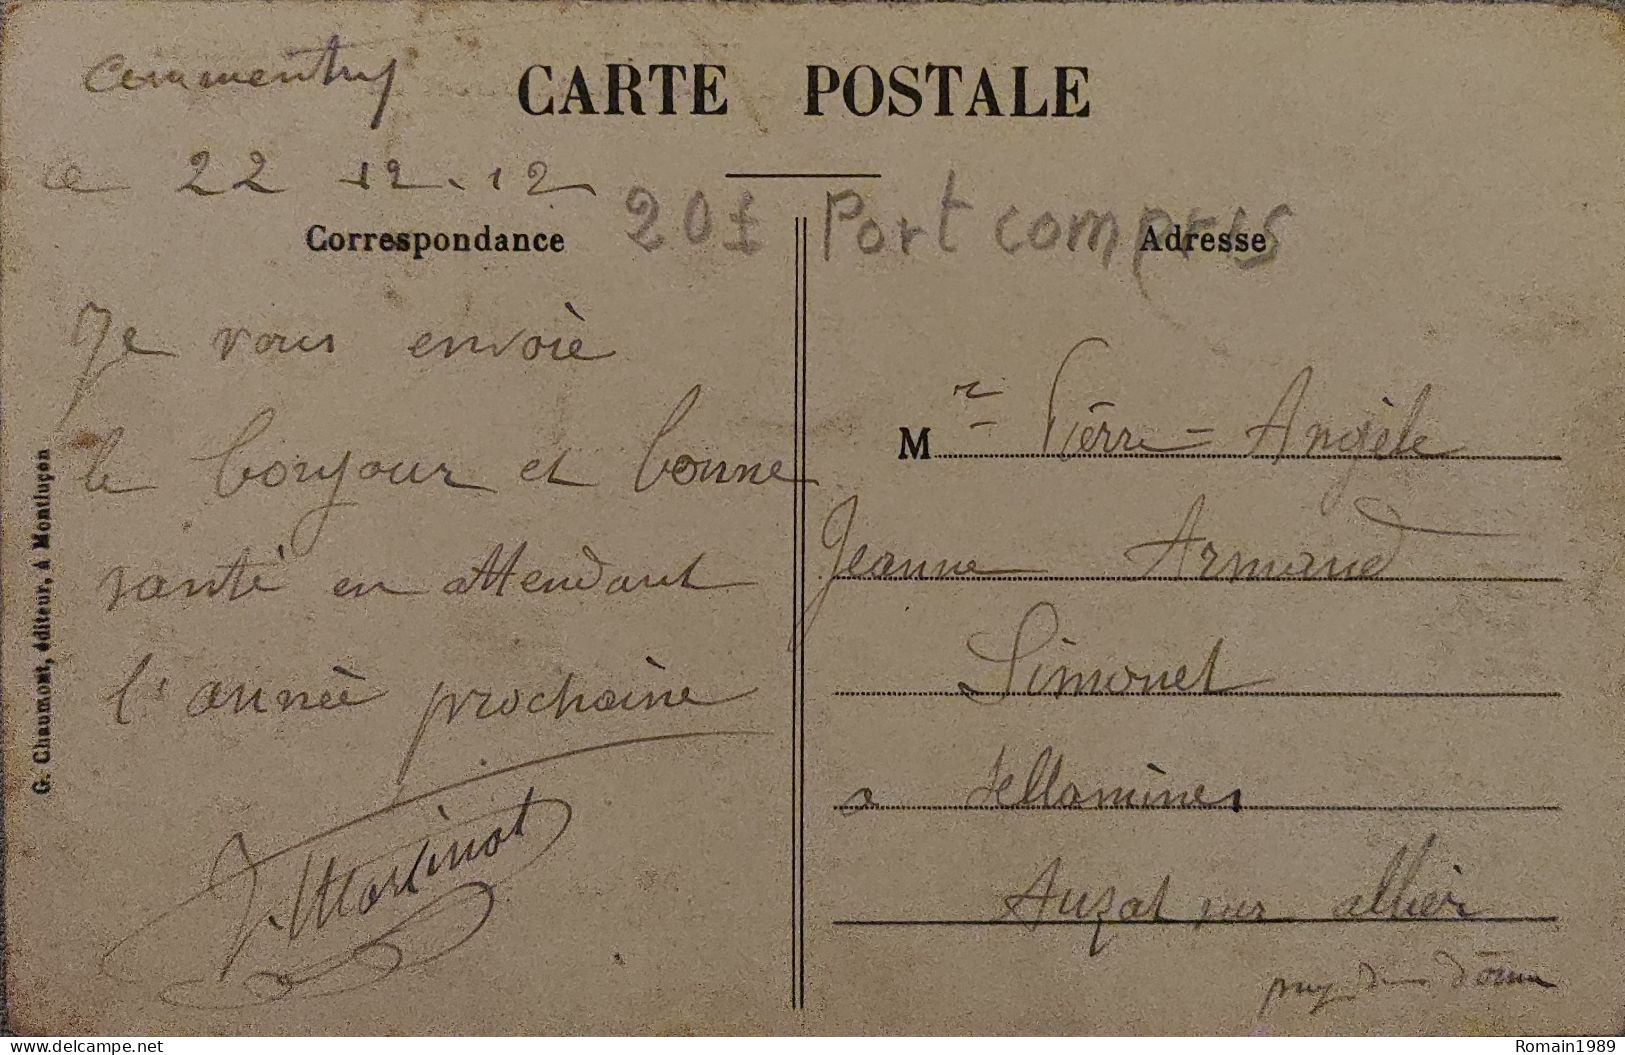 Commentry
CARTE POSTALE
ce 22 12. 12
20£ Port compris
Correspondance
Adresse
Je vous envoie
le bonjour et bonne
santé en attendant
l'année prochaine
J. Martinot
Mr Pierre - Angèle
Jeanne Armand
Simonet
a Sellamines
Auzat sur allier
puy de dôme
G. Chaumont, éditeur, à Montluçon
delcampe.net
Romain1989